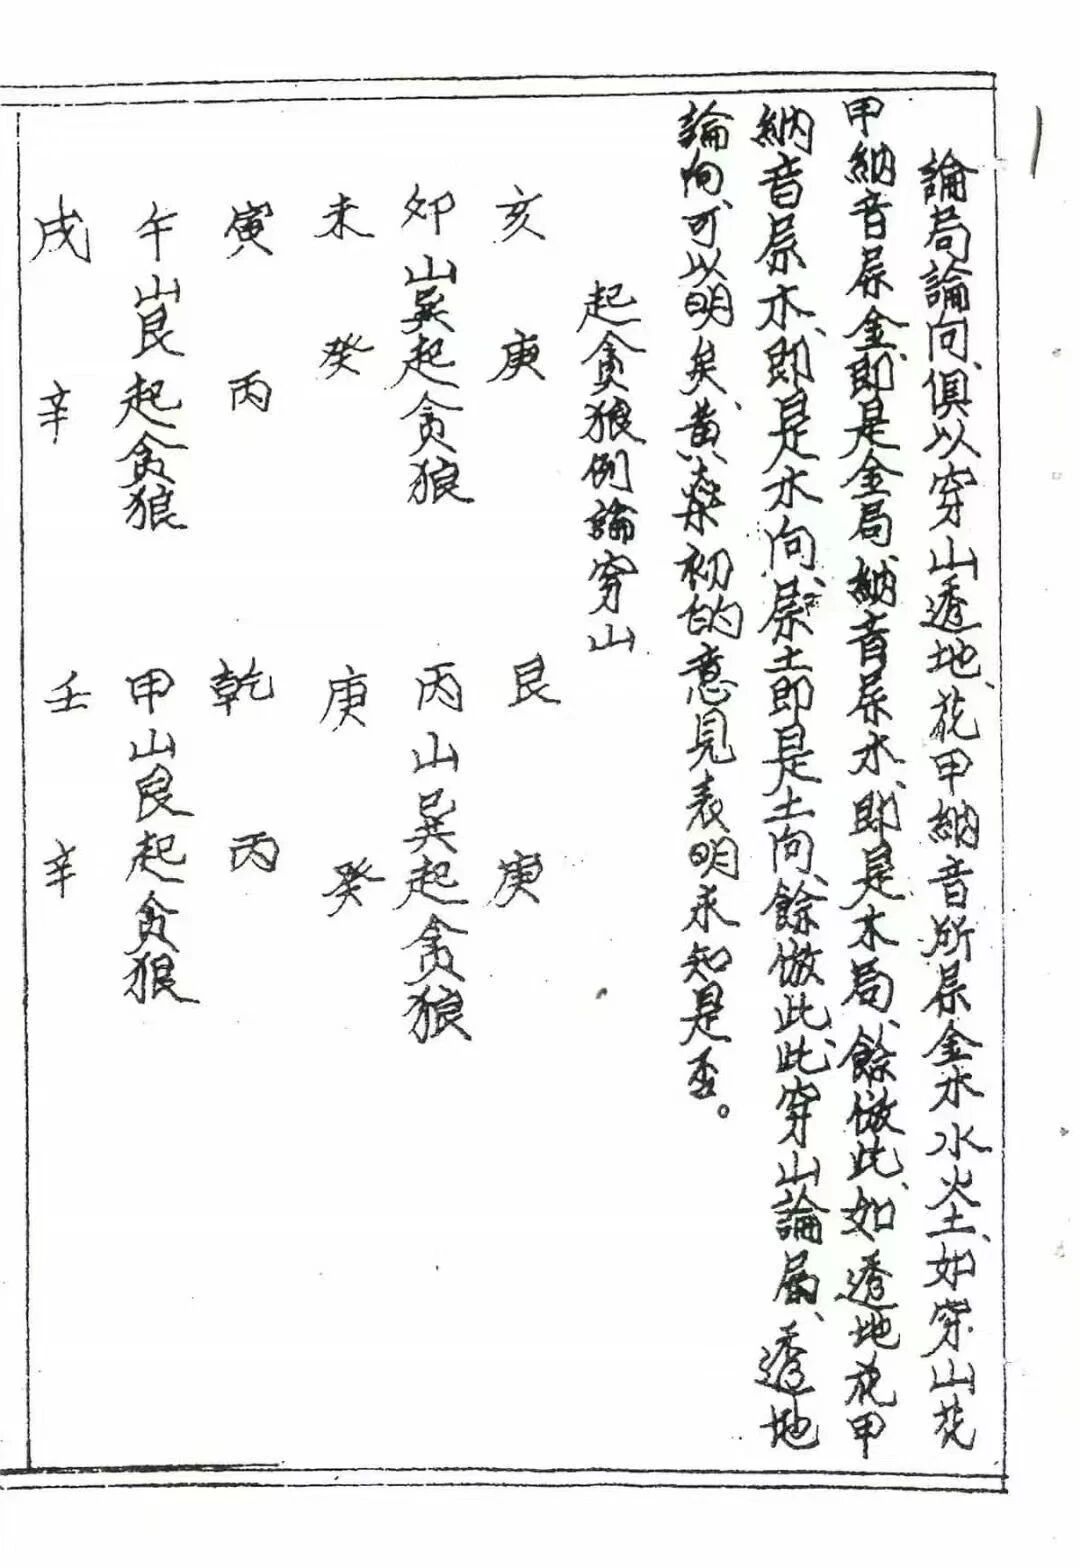 論局論向、俱以穿山透地、花甲納音所屎金木水火土、如穿山花
甲納音屎金、即是金局、納音屎水、即是木局、餘倣此、如透地花甲
納音屎木、即是水向、屎土即是土向、餘倣此、此穿山論局、透地
論向、可以明矣、黃燊初的意見表明、未知是否。
起貪狼例論穿山
亥 庚 艮 庚
卯山巽起貪狼 丙山巽起貪狼
未 癸 庚 癸
寅 丙 乾 丙
午山艮起貪狼 甲山艮起貪狼
戌 辛 壬 辛